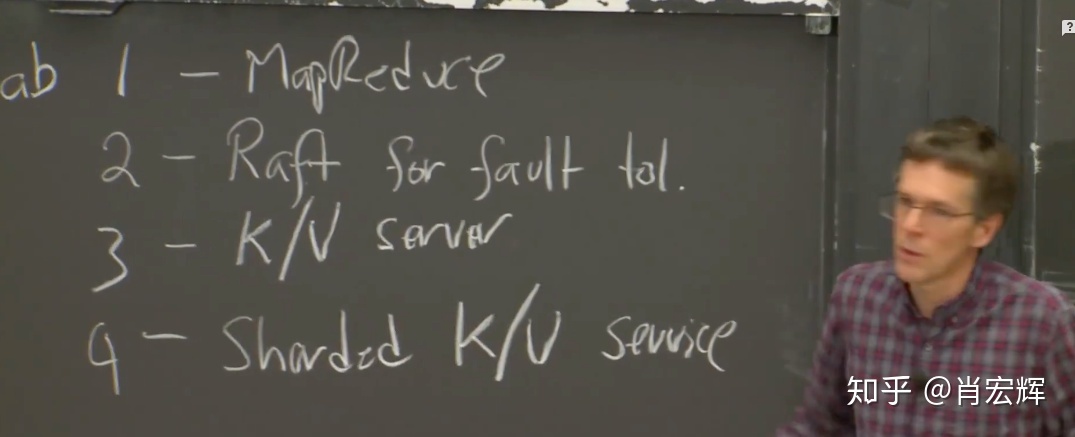 ab 1 - MapReduce
2 - Raft for fault tol.
3 - K/V server
4 - Sharded K/V service
知乎 @肖宏辉
?